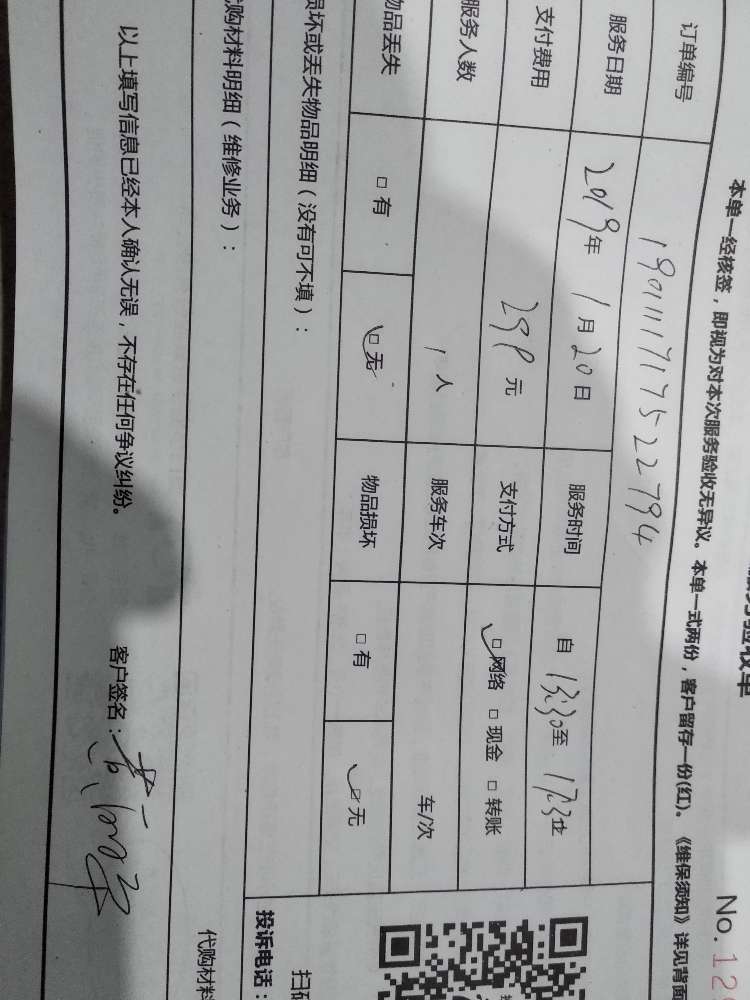 验收单
No. 12
本单一经核签，即视为对本次服务验收无异议。本单一式两份，客户留存一份(红)。《维保须知》详见背面
订单编号 190111717522794
服务日期 2019年 1月 20日 服务时间 自 13:30至 17:3
支付费用 298元 支付方式 □网络 □现金 □转账
服务人数 1人 服务车次 车/次
物品丢失 □有 □无 物品损坏 □有 □无
损坏或丢失物品明细（没有可不填）：
投诉电话：
代购材料明细（维修业务）：
代购材料
以上填写信息已经本人确认无误，不存在任何争议纠纷。 客户签名：